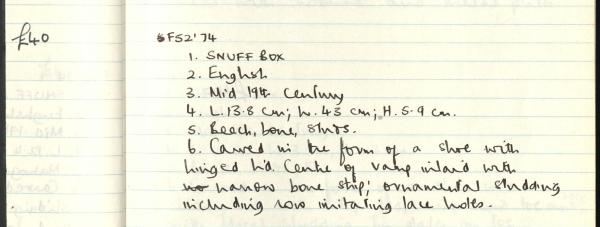 £40
F52'74
1. SNUFF BOX
2. English
3. Mid 19th Century
4. L.13.8 cm; W. 4.3 cm; H. 5.9 cm.
5. Beech, bone, studs.
6. Carved in the form of a shoe with
hinged lid. Centre of vamp inlaid with
narrow bone strip; ornamental studding
including row imitating lace holes.